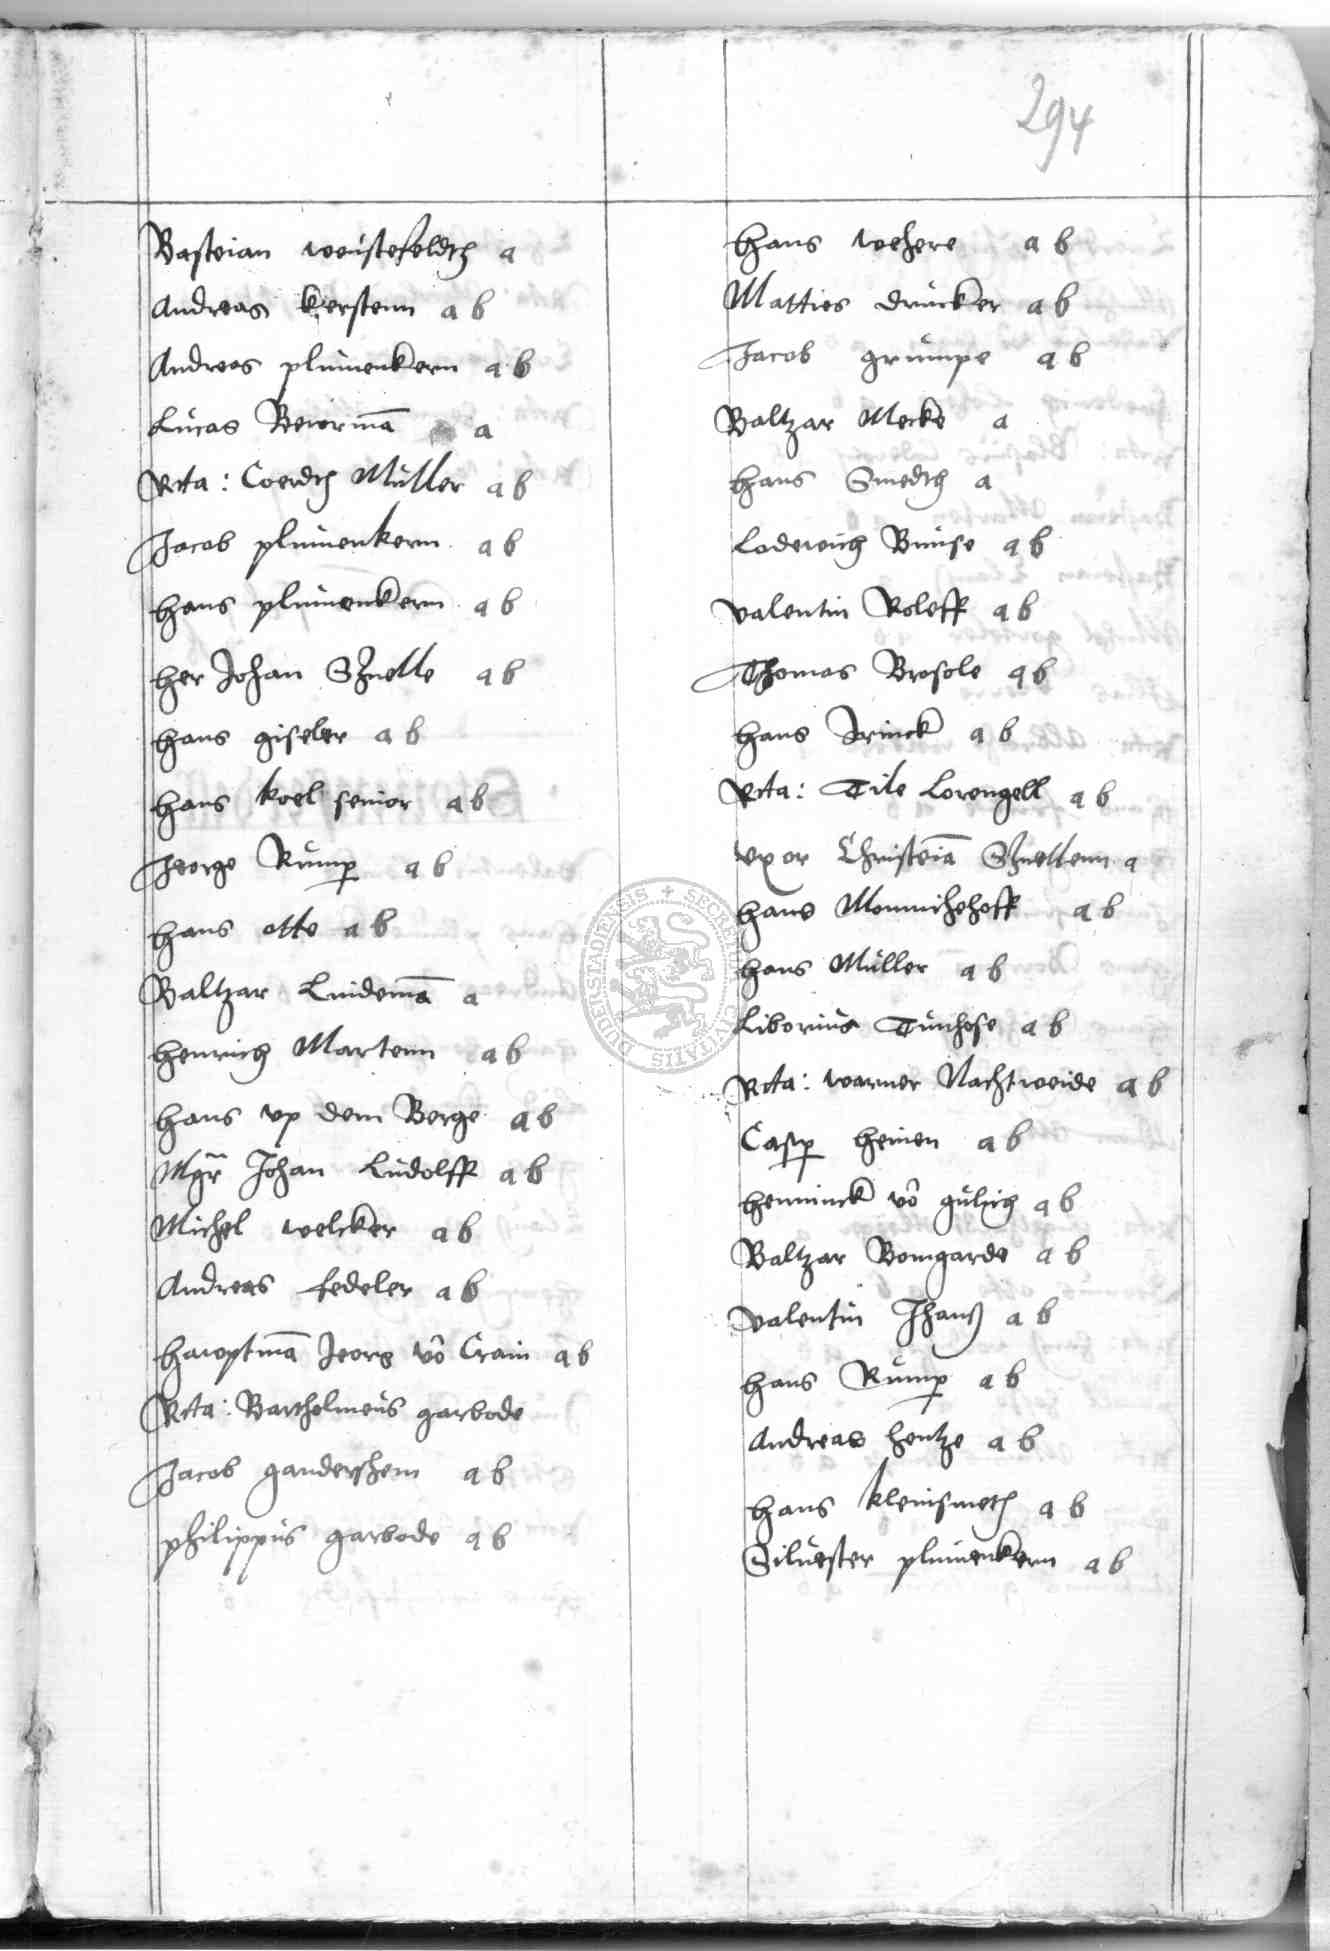 294
Basteian wustefeldth a
Andreas kerstenn a b
Andreas plumenkern a b
Lucas Beiermā a
Rcta: Coerdth Müller a b
Jacob plumenkern a b
hans plumenkern a b
her Johan Shnelle a b
hans giseler a b
hans koel senior a b
Jeorge Rump a b
hans otto a b
Baltzar Lindemā a
henrich Martenn a b
hans up dem Berge a b
Mgr Johan Ludolff a b
Michel welcker a b
Andreas fedeler a b
hawptmā Jeorg vō Crain a b
Rcta: Bartholmeus garbode
Jacob gandershem a b
philippus garbode a b
hans wehere a b
Matties drucker a b
Jacob grumpe a b
Baltzar Mecke a
hans Smedth a
Loderich Bunse a b
valentin Roleff a b
Thomas Brosole a b
hans Jrinck a b
Rcta: Tile Lorengell a b
uxor Christeiā Shnellenn a
hans Monnichehoff a b
hans Müller a b
Liborius Tunhose a b
Rcta: warner Nachtweide a b
Casp heinen a b
henninck vō gulich a b
Baltzar Bomgarde a b
valentin Jhans a b
hans Rump a b
Andreas hentze a b
hans kleinsmeth a b
Siluester plumenkern a b
SECRETUM CIVITATIS DUDERSTADIENSIS